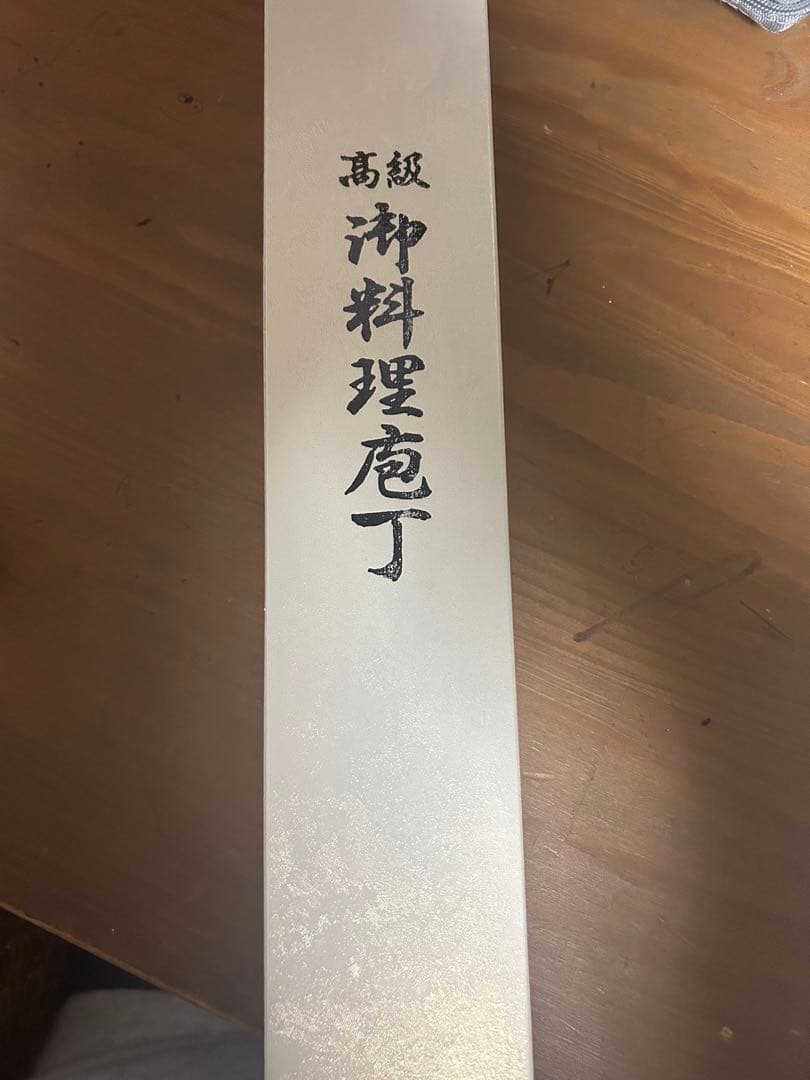 高級
御料理庖丁